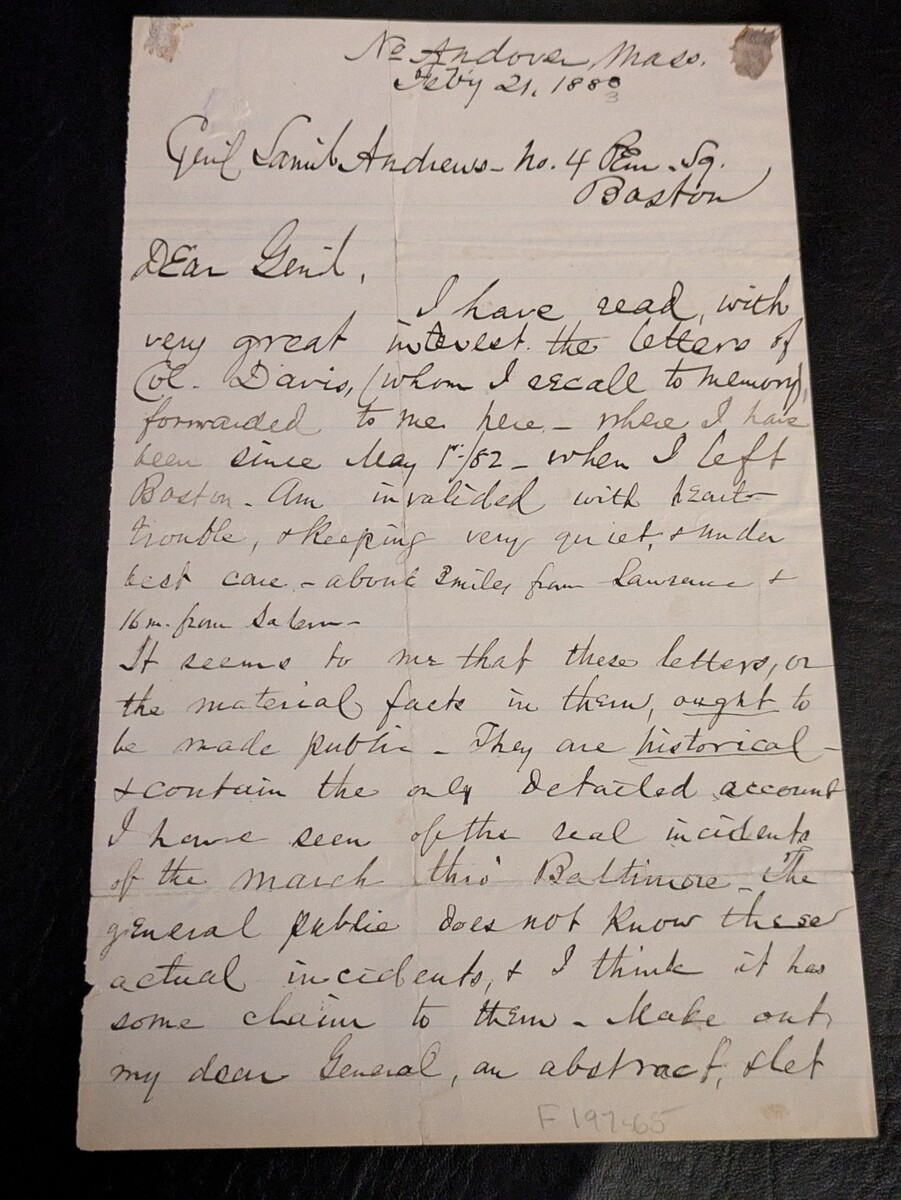 No Andover, Mass.
Feb'y 21, 1883
3
Gen'l Sam'l Andrews - No. 4 Pem. Sq.
Boston
Dear Gen'l,
I have read, with
very great interest. the letters of
Col. Davis, (whom I recall to memory),
forwarded to me here - where I have
been since May 1st/82 - when I left
Boston - Am invalided with heart-
trouble, & keeping very quiet, & under
best care - about 3 miles from Lawrence &
16 m. from Salem -
It seems to me that these letters, or
the material facts in them, ought to
be made public - They are historical -
& contain the only detailed account
I have seen of the real incidents
of the march thro' Baltimore - The
general public does not know these
actual incidents, & I think it has
some claim to them - Make out,
my dear General, an abstract, & let
F 197-65